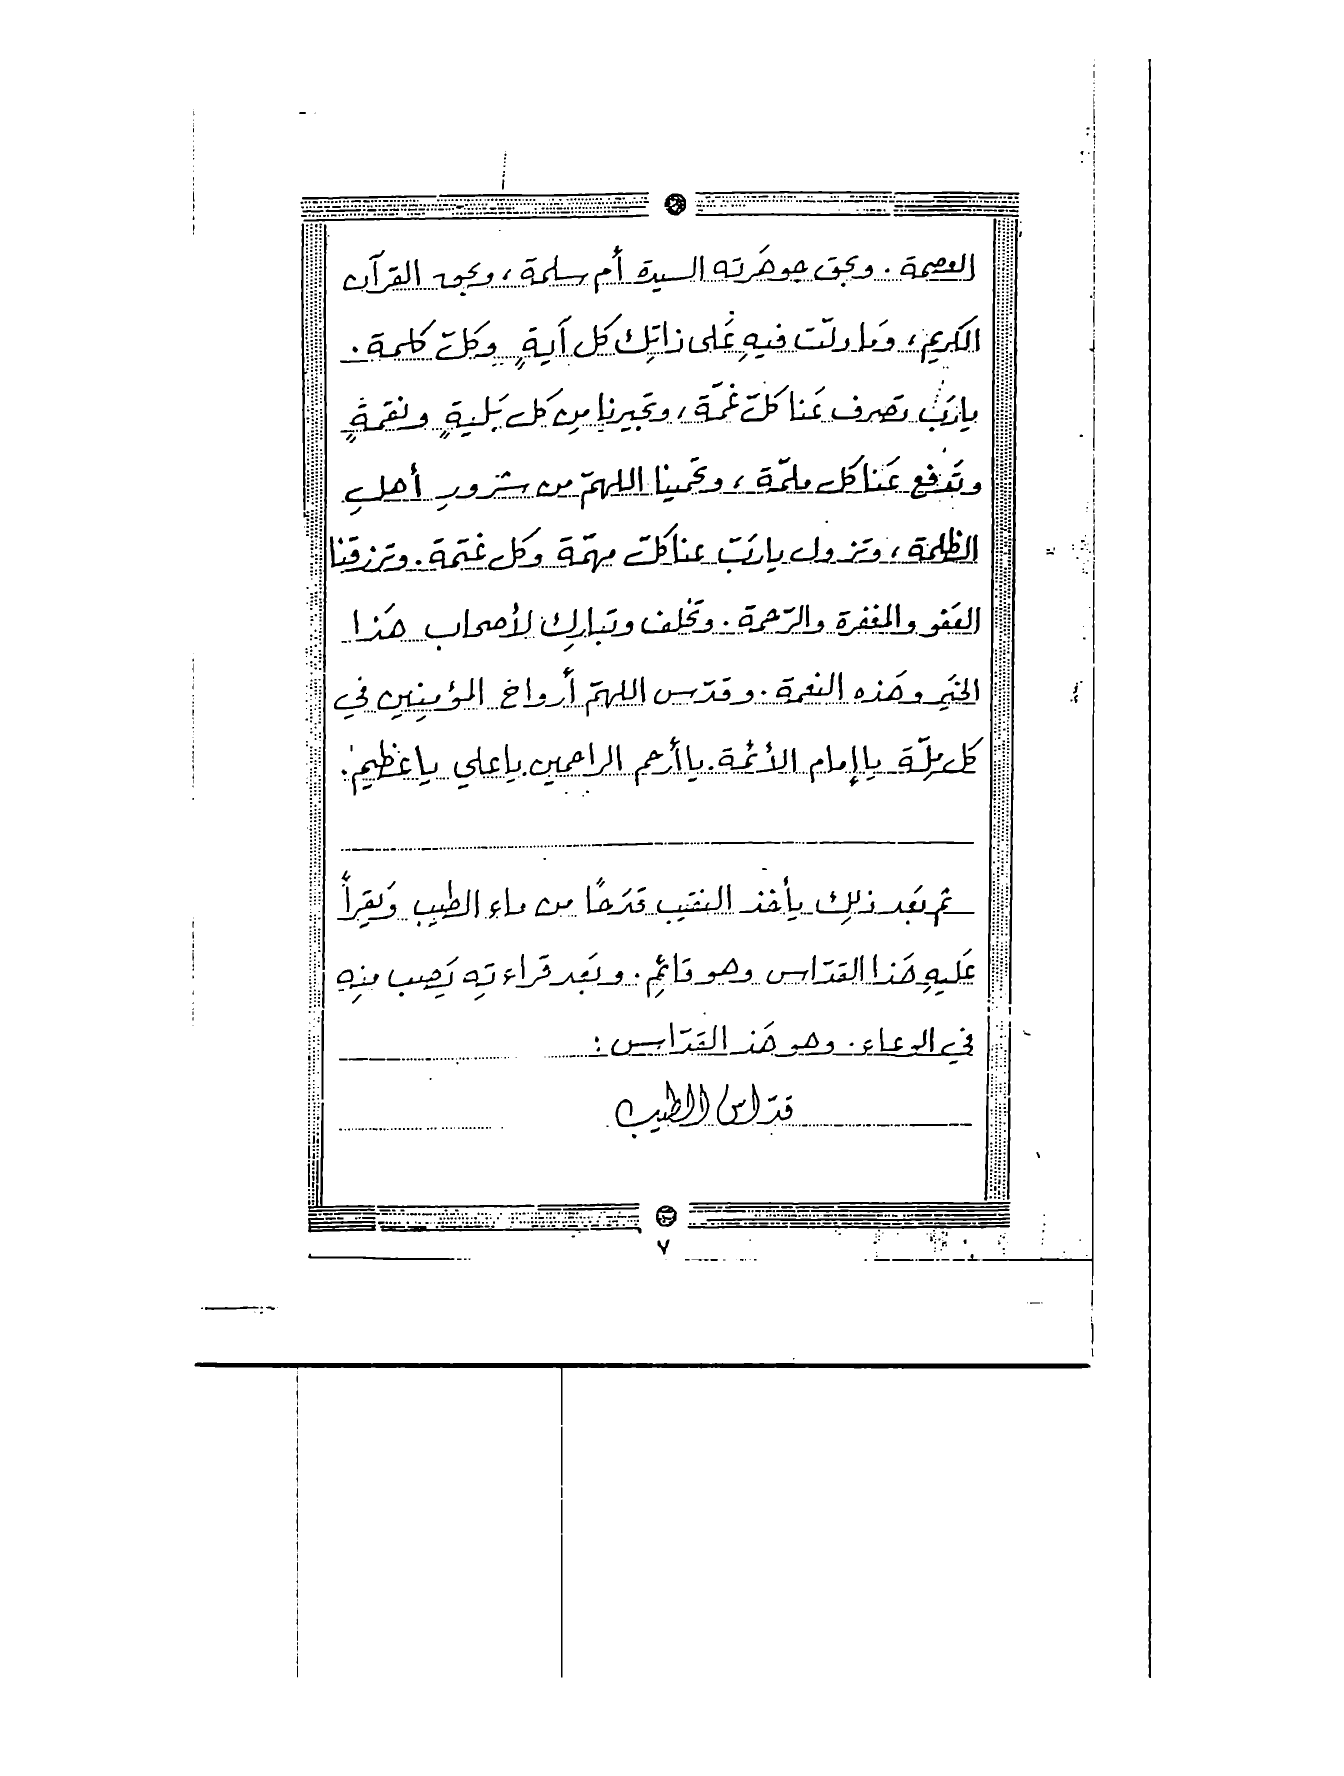 العصمة. وبحق جوهرته السيدة أم سلمة، وبحق القرآن
الكريم، وَما دلّت فيهِ عَلى ذاتِك كل آيةٍ وكلّ كلمة.
يارَبّ تصرف عَنا كلّ غمّة، وتجيرنا مِن كل بَليةٍ ونقمةٍ
وتَدفع عَنا كل ملمّة، وتحَمينا اللهمّ من شرورِ أهلِ
الظلمة، وتزول يارَبّ عنا كلّ مهمّة وكل غتمة. وترزقنا
العَفو والمغفرة والرّحمة. وتخلف وتبارِك لأصحاب هَذا
الخيَر وهَذه النعمة. وقدّس اللهمّ أرواح المؤمِنِين في
كل مِلّة ياإمام الأئمة. ياأرحم الراحمين ياعلي ياعَظيم.
ثم بَعد ذلِك يأخذ النقيب قدَحًا من ماء الطيِب وَيقرأ
عَليهِ هَذا القدّاس وهو قائِم. وبَعد قراءتِه يَصِب مِنهِ
في الوعاء. وهو هَذ القدّاس:
قدّاس الطيب
٧